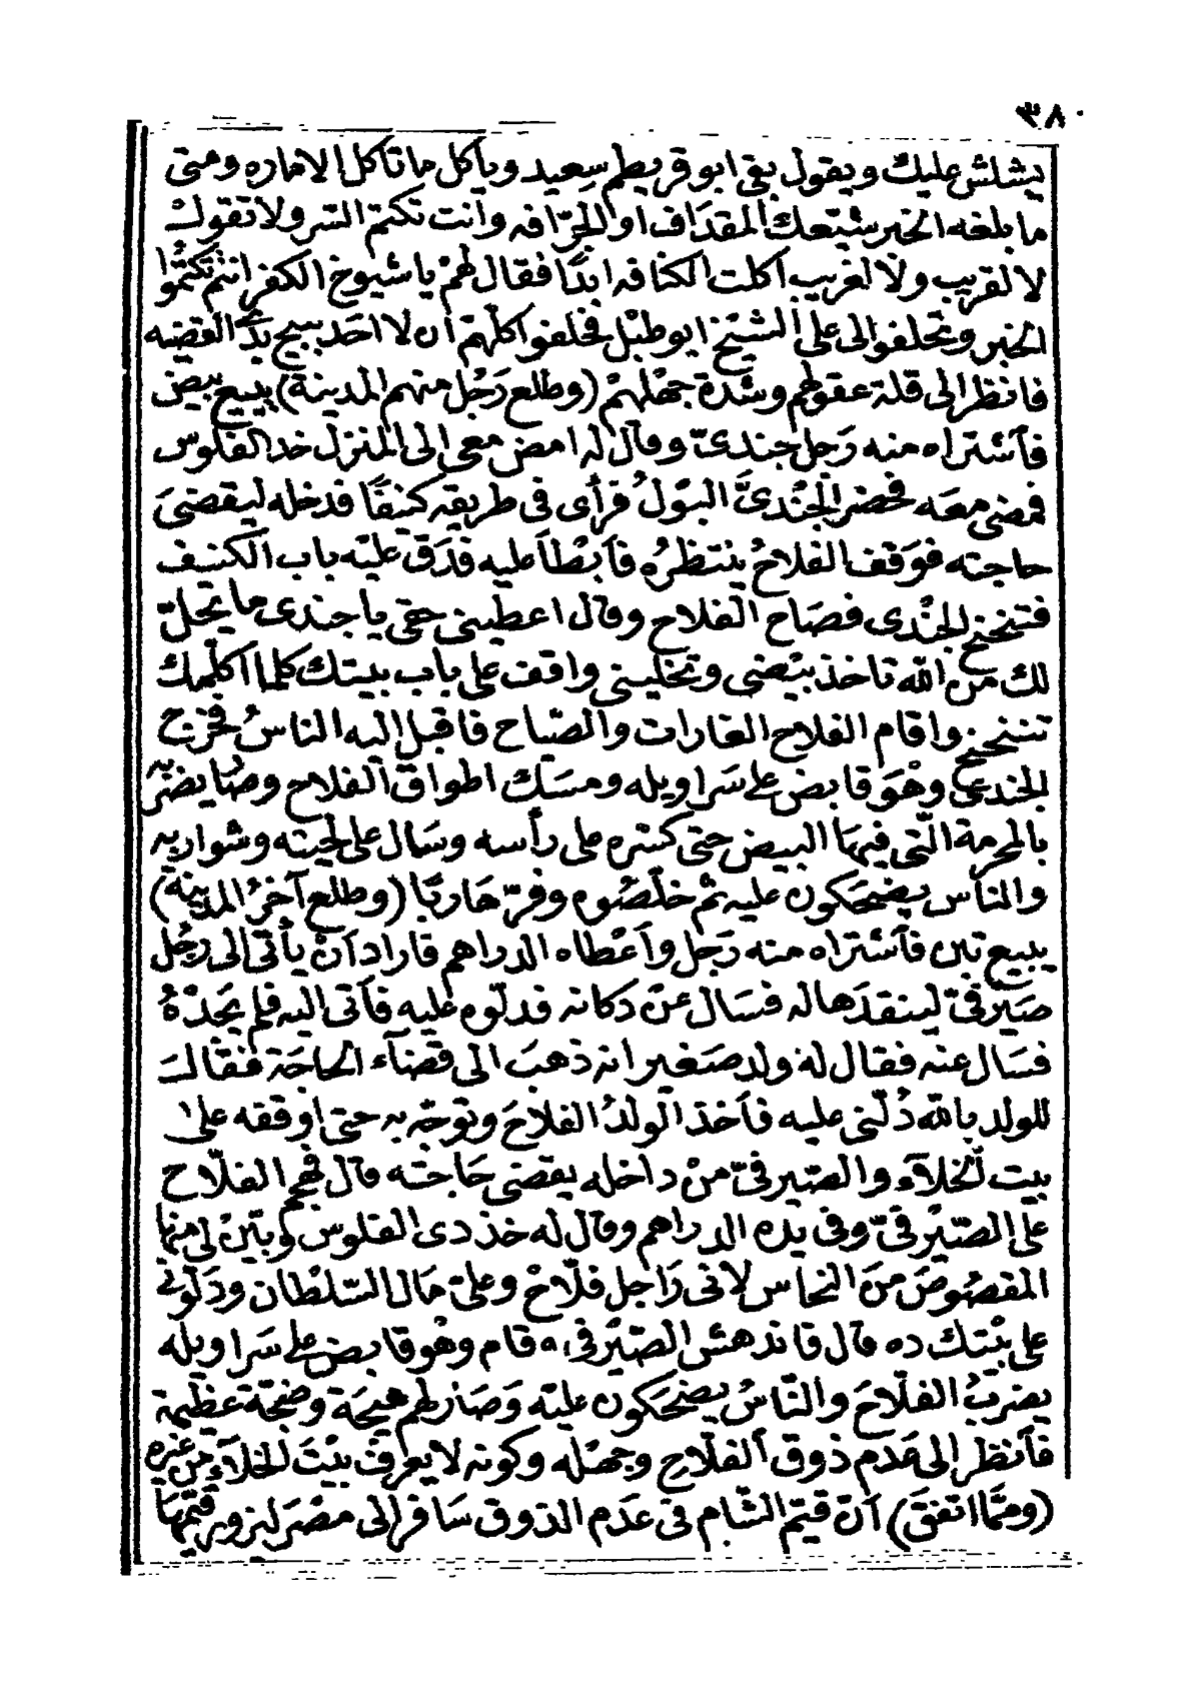 ٣٨٠
يشلش عليك ويقول بقى ابو قريطم سعيد وياكل ما تاكل الاماره ومتى
ما بلغه الخبر شيتعك المقداف او الجرّافه وانت تكتم السر ولا تقول
لا لقريب ولا لغريب اكلت الكنافه ابدًا فقال لهمْ يا شيوخ الكفر انتم تكتموا
الخبر وتحلفوا لى على الشيخ ابو طبْل فحلفوا كلّهمْ ان لا احد يبيح بدى القضيه
فانظر الى قلة عقولهم وشدة جهْلهمْ (وطلع رَجُل منهم المدينة) يبيع بيض
فآشتراه منه رَجل جندىّ وقال له امض معى الى المنزل خد الفلوس
فمضى معَه فحضر الجُنْدىَّ البَوْلُ فرأى فى طريقه كنيفًا فدخله ليقضىَ
حاجته فوَقف الفلاحُ ينتظرُه فآبْطآ عليه فدَق عليْه باب الكنيف
فتنحنح الجُنْدى فصَاح الفلاح وقال اعطينى حقى يا جندى ما يحلّ
لك منَ اللّه تاخذ بيْضى وتخلينى واقف على باب بيتك كلما اكلّمك
تتنحنح واقام الفلاح الغارات والصّياح فاقبل اليه الناسُ فخرج
الجندىّ وهْوَ قابض على سَراويله ومسَك اطواق الفلاح وصَار يضربه
بالمحرمة الّتى فيهَا البيض حتى كسّره على رأسه وسَال على لحيْته وشواربه
والناس يضحَكون عليه ثمّ خلّصُوه وفرّ هَاربًا (وطلع آخرُ المدينة)
يبيع تين فآشتراه منه رَجل وآعْطاه الدراهم فاراد آنْ يأتى الى رجُل
صَيْرفىّ لينقدَها له فسَال عنْ دكانه فدلّوه عليه فآتى اليه فلم يَجدْهُ
فسَال عنه فقال لهُ ولد صَغير انه ذهبَ الى قضآء الحاجَة فقال
للولد باللّه دُلّنى عليه فآخذ الولدُ الفلاحَ وتوجّه به حتى اوقفه على
بيت الخلآء والصّيرفىّ منْ داخله يقضى حَاجته قال فهجم الفلّاح
على الصّيْرفىّ وفى يده الدراهم وقال له خذ دى الفلوس وبيّنْ لى منها
المقصُوصَ منَ النحاس لانى رَاجل فلّاحْ وعلىّ مَال السّلطان ودَلّونى
على بيْتك ده قال فاندهش الصّيْرفى ه قام وهُو قابض على سَراويله
يضربُ الفلّاحَ والنّاسُ يضحَكون عليْه وَصَار لهم هيجَة وضجّة عظيمة
فآنظر الى عَدم ذوق الفلّاح وجهْله وكونه لا يعرفُ بيْتَ الخلآء من غيره
(وممّا اتفقَ) آنّ قيّم الشّام فى عَدم الذوق سَافر الى مصْرَ ليزورَ قيّمهَا